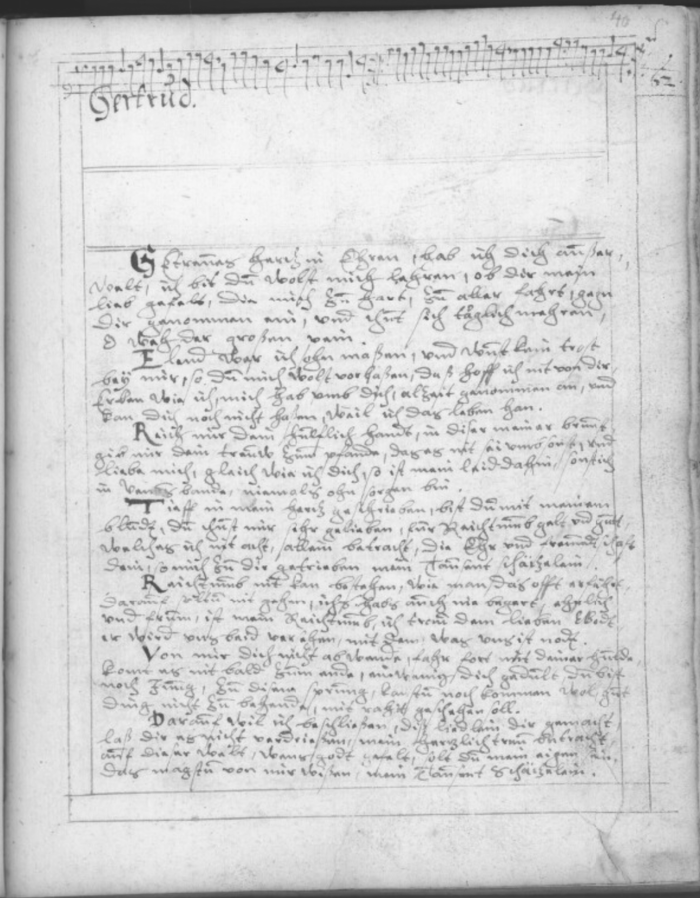 40
62
Gertrud.
Getrawes hertz in Ehren, hab ich dich außer,
welt, ich bit du wolst mich lehren, ob dir mein
lieb gefelt, die mich zu hart, zu aller fahrt, gegn
dir genommen ein, und thut sich täglich mehren,
O weh der großen pein.
Elend war ich ohn maßen, und wust kein trost
bey mir, so du mich wolt verlaßen, daß hoff ich nit von dir,
wie ich mich hab umb dich, alzeit genommen an, und
kan dich noch nicht haßen, weil ich das leben han.
Reich mir dein hülflich handt, in diser meiner brunst,
gib mir dein trew zum pfande, das es nit sei umb sonst, und
liebe mich, gleich wie ich dich, so ist mein leid dahin, sonst ich
in bande, niemals ohn sorgen bin.
Tieff in mein hertz geschrieben, bist du mit meinem
blude, du thust mir sehr gelieben, für Reichtumb gelt und gut,
welches ich nit acht, allein betracht, die Ehr und
dein, so mich zu dir getrieben mein Tausent schätzelein.
Reichtumb nit kan bestehen, wie man das offt erfehrt,
darauf nit gehen, ichs hab auch nie begert, ehrlich
und frum, ist mein Reichtumb, ich traw dem lieben Gott
er wird uns bald versehen, mit dem, was uns ist noth.
Von mir dich nicht abwende, fahr fort mit deiner hulde,
komt es nit bald zum ende, ein wenig dich gedult, du bist
noch Jung, zu disem sprung, kanstu noch kommen wol gut
ding nicht zu behende, mit recht geschehen soll.
Darauf wil ich beschließen, diß liedlein dir gemacht,
laß dir es nicht verdrießen, mein hertzlich trew betracht,
auf dieser welt, wens gott gefelt, solt du mein eigen sein,
das magstu von mir wißen, mein Tausent Schätzelein.